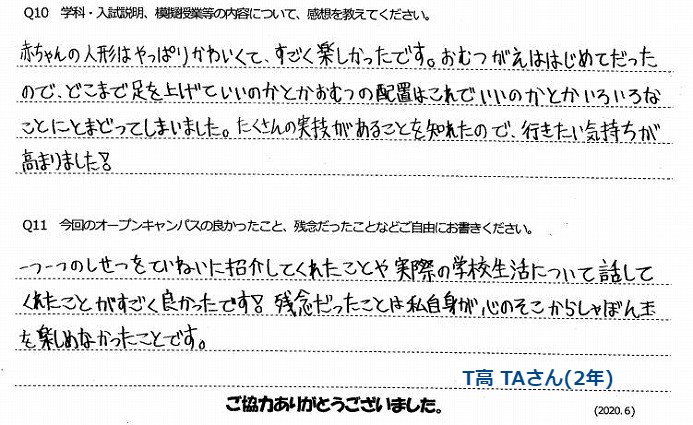 Q10 学科・入試説明、模擬授業等の内容について、感想を教えてください。
赤ちゃんの人形はやっぱりかわいくて、すごく楽しかったです。おむつがえははじめてだった
ので、どこまで足を上げていいのかとかおむつの配置はこれでいいのかとかいろいろな
ことにとまどってしまいました。たくさんの実技があることを知れたので、行きたい気持ちが
高まりました!
Q11 今回のオープンキャンパスの良かったこと、残念だったことなどご自由にお書きください。
一つ一つのしせつをていねいに紹介してくれたことや実際の学校生活について話して
くれたことがすごく良かったです! 残念だったことは私自身が、心のそこからしゃぼん玉
を楽しめなかったことです。
T高 TAさん(2年)
ご協力ありがとうございました。
(2020.6)